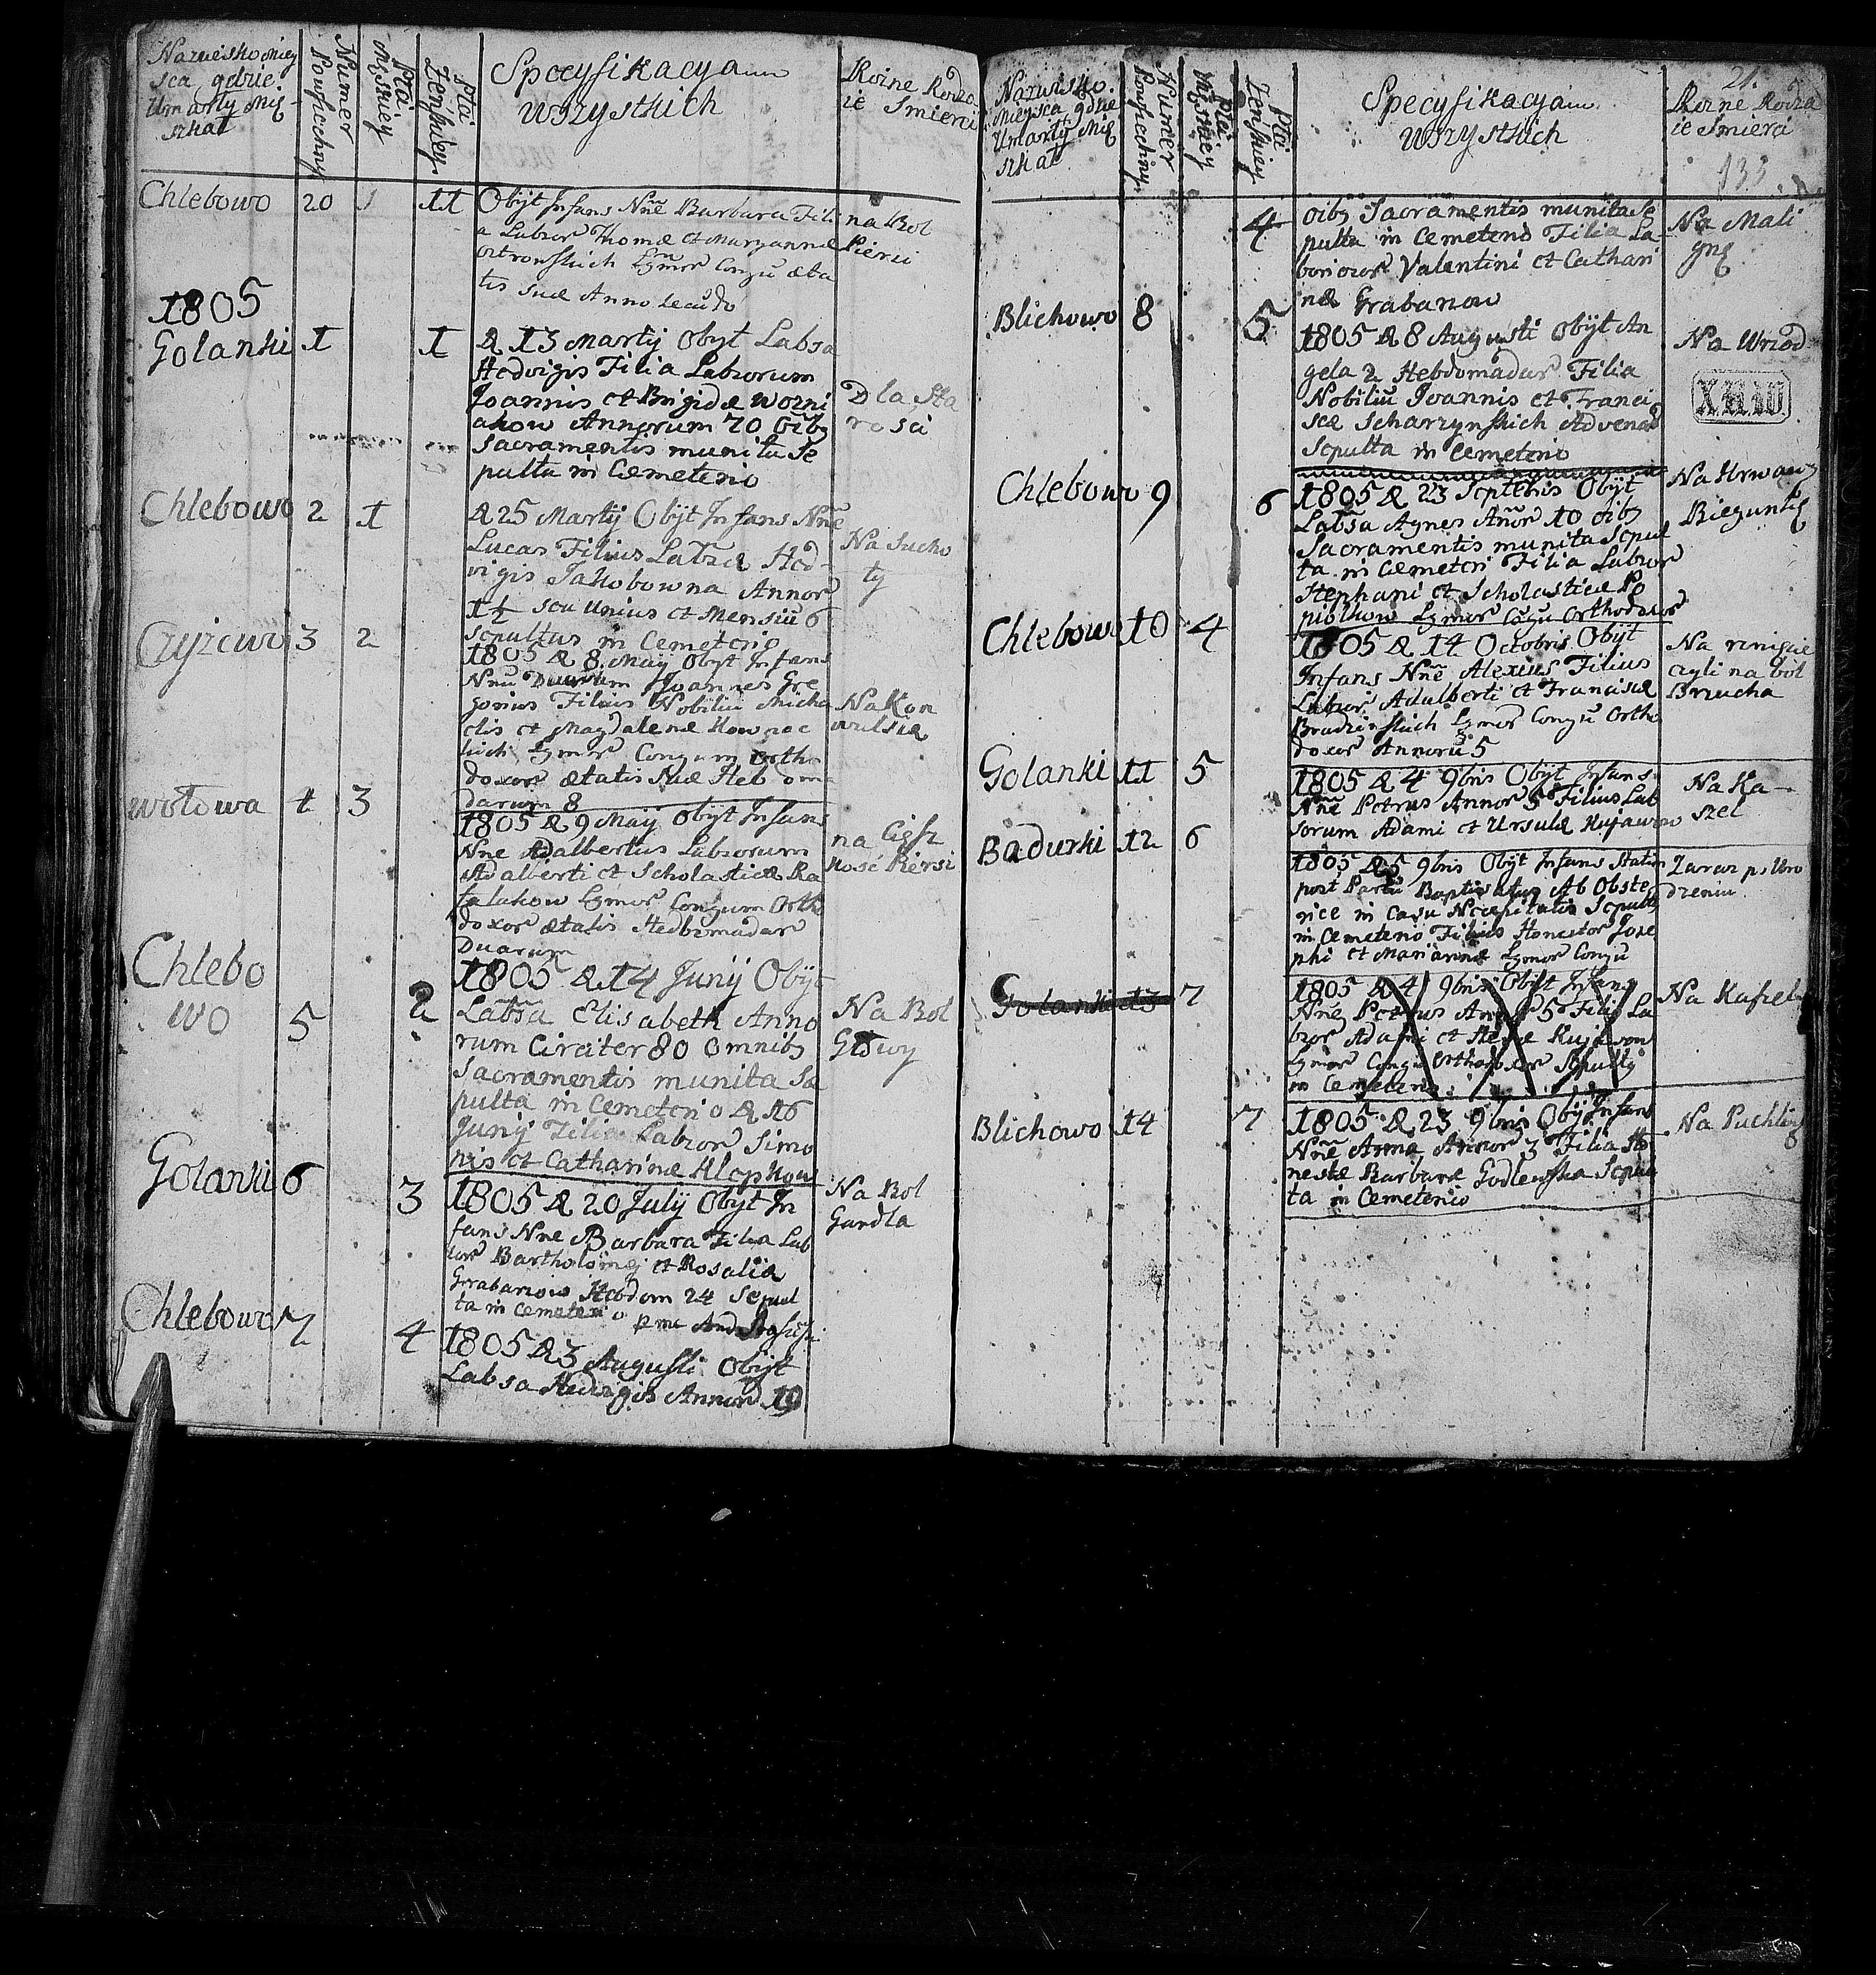 Nazwisko miey
sca gdzie
Umarły Mię
szkał
Numer
Powszechny
Płci
Męskiey
Płci
Zenskiey
Specyfikacya
wszystkich
Rożne Rodza
ie Smierci
Chlebowo 20 1 11
Obijt Infans Nñe Barbara Fili
a Labror Thomæ et Maryannæ
ostrowskich Lgmor Congu æta
tis suæ Anno secudo
na Bol
Piersi
1805
Golanki 1 1
D 13 Martij Obyt Labsa
Hedvigis Filia Labrorum
Joannis et Brigidæ Wozni
akow Annorum 70 oibg
Sacramentis munita Se
pulta in Cemeterio
Dla Sta
rosci
Chlebowo 2 1
D 25 Martij Obijt Infans Nñe
Lucas Filius Labsæ Hed
vigis Jakobowna Annor
1½ seu Unius et Mensiũ 6
Sepultus in Cemeterio
Na Sucho
ty
Czyzewo 3 2
1805 D 8 Maij Obyt Infans
Nnũ Duorum Joannes Gre
gorius Filius Nobiliũ Micha
elis et Magdalenæ Kownac
kich Lgmor Congum Ortho
doxor ætatis suæ Hebdoma
darum 8
Na Kon
wulsie
Wołowa 4 3
1805 D 9 Maij Obyt Infans
Nne Adalbertus Labrorum
Adalberti et Scholasticæ Ra
takow Lgmor Congum Ortho
doxor ætatis Hedbomadar
Duarum
na Cięsz
kosć Piersi
Chlebo
wo 5 2
1805 D 14 Junij Obijt
Labsa Elisabeth Anno
rum Circiter 80 Omnibg
Sacramentis munita Se
pulta in Cemeterio D 16
Junij Filia Labror Simo
nis et Catharinæ Klopkow
Na Bol
Głowy
Golanki 6 3
1805 D 20 Julij Obijt In
fans Nne Barbara Filia Lab
ror Bartholomej et Rosaliæ
Grabarwis Hebdom 24 Sepul
ta in Cemeterio
Na Bol
Gardła
Chlebowo 7 4
1805 D 3 Augusti Obijt
Labsa Hedvigis Annor 19
21.
Nazwisko
Mieysca gdzie
Umarły Mię
szkał
Numer
Powszechny
Płci
Męskiey
Płci
Zenskiey
Specyfikacya
wszystkich
Rożne Rodza
ie Smierci
133
4
oibg Sacramentis munita Se
pulta in Cemeterio Filia La
boriosor Valentini et Cathari
næ Grabarow
Na Mali
gnę
Blichowo 8 5
1805 D 8 Augusti Obijt An
gela 2 Hebdomadar Filia
Nobiliũ Joannis et Franci
scæ Scharzynskich Advenar
Sepulta in Cemeterio
Na Wrzod
XIII
Chlebowo 9 6
1805 D 23 Septebris Obijt
Labsa Agnes Añor 10 oibg
Sacramentis munita Sepul
ta in Cemeteri Filia Labror
Stephani et Scholasticæ Po
piołkow Lgmor Cogu Orthodoxor
Na Krwawą
Biegunkę
Chlebowo 10 4
1805 D 14 Octobris Obijt
Infans Nñe Alexius Filius
Labror Adalberti et Franciscæ
Brudzinskich Lgmor Congu Ortho
doxor Annorũ 5
Na
czyli na bol
Brzucha
Golanki 11 5
1805 D 4 9bris Obijt Infans
Nñe Petrus Annor 5 Filius Lab
rorum Adami et Ursulæ Kujawow
Na Ka
szel
Badurki 12 6
1805 D 5 9bris Obijt Infans Statim
post Partũ Baptisatus Ab Obste
trice in Casu Necessitatis Sepultg
in Cemeterio Filius Honestor Jose
phi et Mariannæ Lgmor Congu
Zaraz po Uro
dzeniu
Golanki 13 7
1805 D 4 9bris Obijt Infans
Nñe Petrus Annor 5 Filig La
bror Adami et
Lgmor Congu Orthodoxor Sepultg
in Cemeterio
Na Kaszel
Blichowo 14 7
1805 D 23 9bris Obijt Infans
Nñe Anna Annor 3 Filia Ho
nestæ Barbaræ Godlewska Sepul
ta in Cemeterio
Na Puchlinę